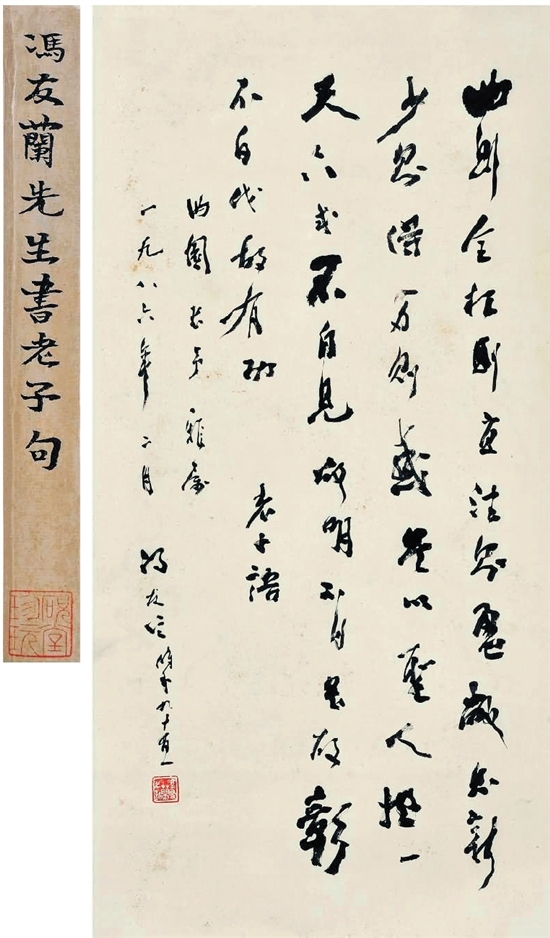 曲則全枉則直洼則盈敝則新
少則得多則惑是以聖人抱一
天下式不自見故明不自是故彰
不自伐故有功 老子語
雅屬
一九八六年二月 馮友蘭時年九十有一
馮友蘭先生書老子句